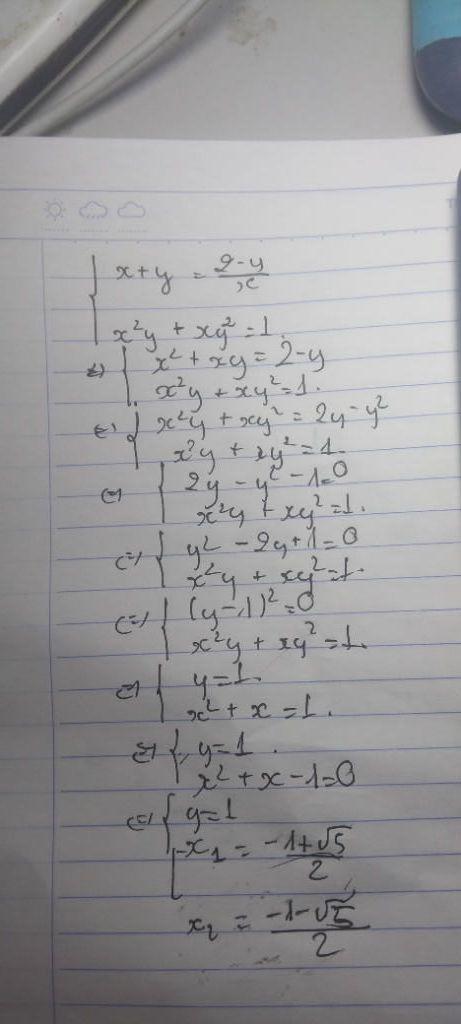 { x + y = (2-y)/x
x²y + xy² = 1.
⇔ { x² + xy = 2-y
x²y + xy² = 1.
⇔ { x²y + xy² = 2y - y²
x²y + xy² = 1.
⇔ { 2y - y² - 1 = 0
x²y + xy² = 1.
⇔ { y² - 2y + 1 = 0
x²y + xy² = 1.
⇔ { (y-1)² = 0
x²y + xy² = 1.
⇔ { y = 1.
x² + x = 1.
⇔ { y = 1.
x² + x - 1 = 0
⇔ { y = 1
x₁ = (-1+√5)/2
x₂ = (-1-√5)/2